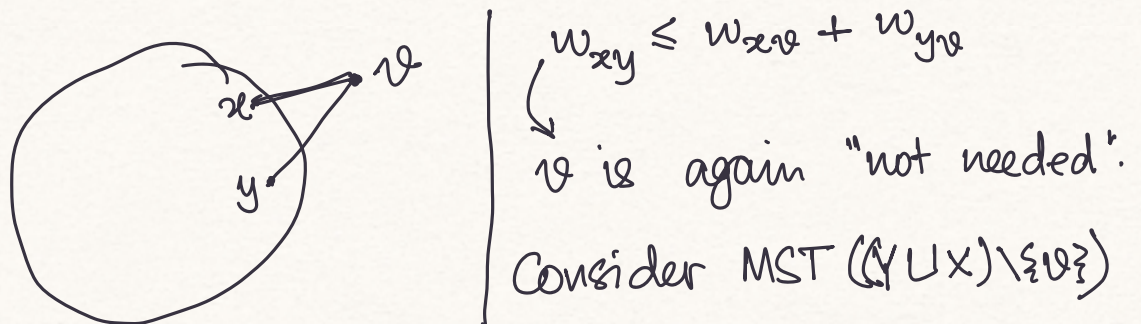 x v
y
w_xy ≤ w_xv + w_yv
v is again "not needed".
Consider MST((Y∪X)\{v})